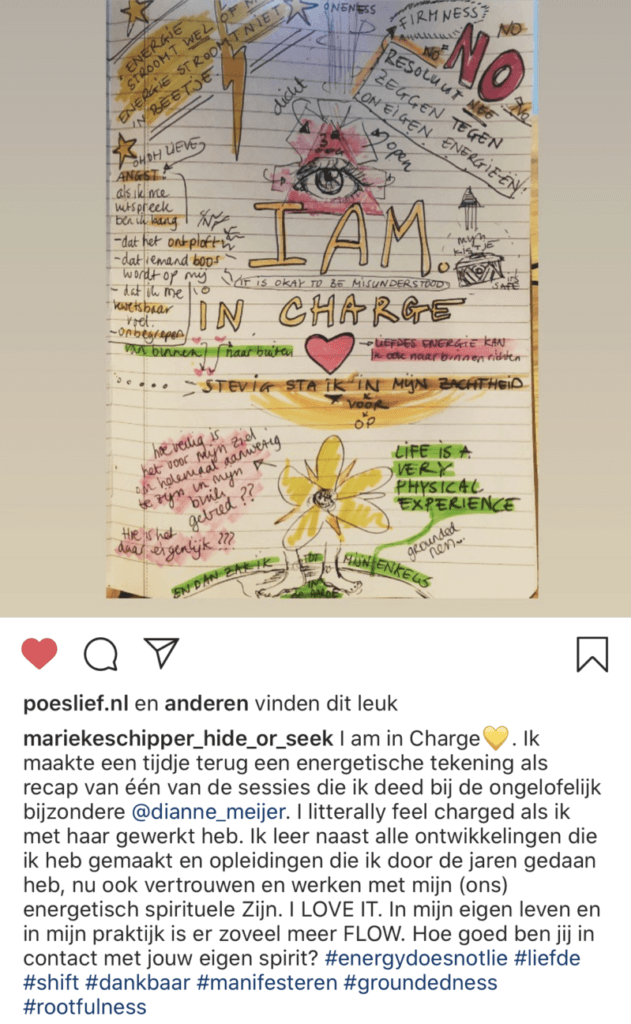 ONENESS
FIRMNESS
NO
NO
NO
NO
ENERGIE
STROOMT WEL OF
ENERGIE STROOMT NIET
'N BEETJE
RESOLUUT NEE
ZEGGEN TEGEN
ON EIGEN ENERGIEËN
dicht
open
OHOH LIEVE
ANGST!
als ik me
uitspreek
ben ik bang
- dat het ontploft
- dat iemand boos
wordt op mij
- dat ik me
kwetsbaar
voel.
- onbegrepen
I AM.
MIJN
KISTJE
IT'S
SAFE
IT IS OKAY TO BE MISUNDERSTOOD
IN CHARGE
van binnen
naar buiten
LIEFDES ENERGIE KAN
ik ook naar binnen richten
STEVIG STA IK IN MIJN ZACHTHEID
VOOR
OP
hoe veilig is
het voor mijn ziel
om helemaal aanwezig
te zijn in mijn
gebied ??
Hoe is het
daar eigenlijk ???
LIFE IS A
VERY
PHYSICAL
EXPERIENCE
grounded
EN DAN ZAK IK
MIJN ENKELS
poeslief.nl en anderen vinden dit leuk
mariekeschipper_hide_or_seek I am in Charge💛. Ik
maakte een tijdje terug een energetische tekening als
recap van één van de sessies die ik deed bij de ongelofelijk
bijzondere @dianne_meijer. I litterally feel charged als ik
met haar gewerkt heb. Ik leer naast alle ontwikkelingen die
ik heb gemaakt en opleidingen die ik door de jaren gedaan
heb, nu ook vertrouwen en werken met mijn (ons)
energetisch spirituele Zijn. I LOVE IT. In mijn eigen leven en
in mijn praktijk is er zoveel meer FLOW. Hoe goed ben jij in
contact met jouw eigen spirit? #energydoesnotlie #liefde
#shift #dankbaar #manifesteren #groundedness
#rootfulness